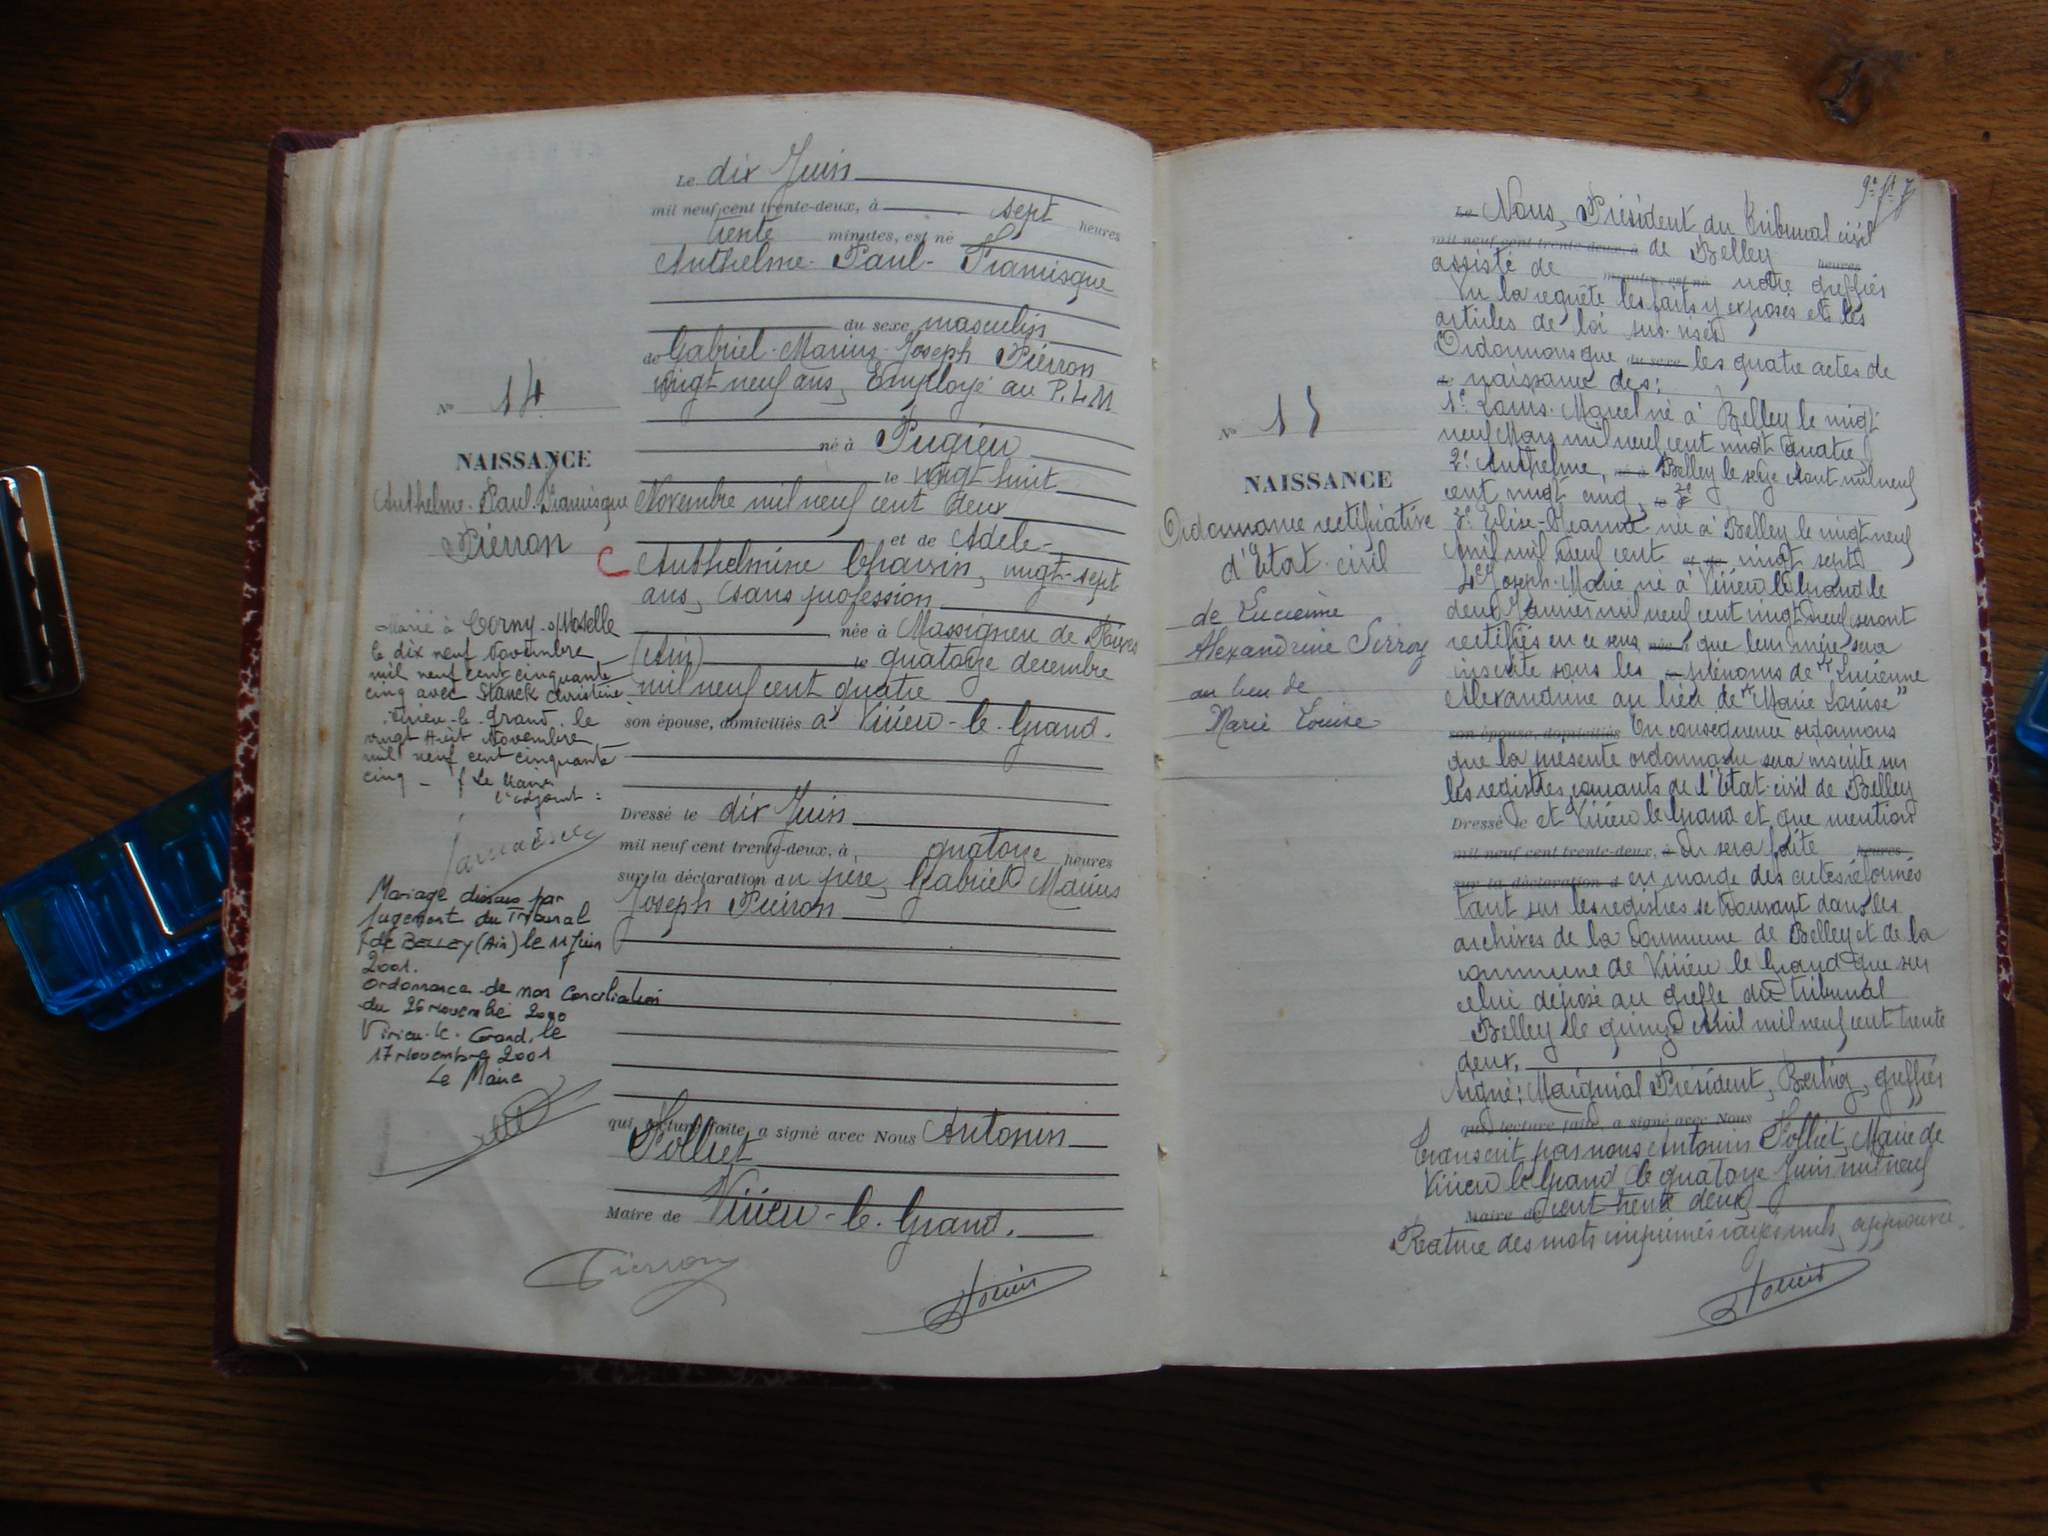 Le dix Juin
mil neuf cent trente-deux, à sept heures
trente minutes, est né
Anthelme-Paul-Framisque
du sexe masculin
de Gabriel-Marius-Joseph Pierron
vingt neuf ans, Employé au P.L.M
né à Pugieu
le vingt huit
Novembre mil neuf cent deux
et de Adèle-
Anthelmine Charvin, vingt-sept
ans, sans profession
née à Massignieu de Rives
(Ain) le quatorze decembre
mil neuf cent quatre
son épouse, domiciliés à Virieu-le-Grand.
Dressé le dix Juin
mil neuf cent trente-deux, à quatorze heures
sur la déclaration du père, Gabriel Marius
Joseph Pierron
qui, lecture faite, a signé avec Nous Antonin
Folliet
Maire de Virieu-le-Grand.
Pierron
Folliet
No 14
NAISSANCE
Anthelme-Paul-Framisque
Pierron
C
Marié à Corny-s/Moselle
le dix neuf Novembre
mil neuf cent cinquante
cinq avec Stanck Christine
Virieu-le-Grand, le
vingt Huit Novembre
mil neuf cent cinquante
cinq - Le Maire
l'adjoint:
Mariage dissous par
jugement du Tribunal
de BELLEY (Ain) le 11 Juin
2001.
ordonnance de non conciliation
du 26 novembre 2000
Virieu-le-Grand, le
17 novembre 2001
Le Maire
9e ft 7
No 15
NAISSANCE
Ordonnance rectificative
d'Etat-civil
de Lucienne
Alexandrine Sirroy
au lieu de
Marie Louise
Le Nous, Président du Tribunal civil
mil neuf cent trente-deux, à de Belley heures
assisté de minutes, est né notre greffier
Vu la requête les faits y exposés et les
articles de loi sus-visés
Ordonnons que du sexe les quatre actes de
de naissance des:
1e Louis-Marcel né à Belley le vingt
neuf Mars mil neuf cent vingt quatre
2e Anthelme, né à Belley le seize Aout mil neuf
cent vingt cinq, le
3e Elise-Jeanne née à Belley le vingt neuf
Avril mil neuf cent et de vingt sept
4e Joseph-Marie né à Virieu le Grand le
deux Janvier mil neuf cent vingt neuf seront
rectifiés en ce sens née à que leur mère sera
inscrite sous les le prénoms de "Lucienne
Alexandrine au lieu de "Marie Louise"
son épouse, domiciliés En conséquence ordonnons
que la présente ordonnance sera inscrite sur
les registres courants de l'Etat-civil de Belley
Dressé le et Virieu le Grand et que mention
mil neuf cent trente-deux, à en sera faite heures
sur la déclaration d en marge des actes réformés
tant sur les registres se trouvant dans les
archives de la Commune de Belley et de la
commune de Virieu le Grand que sur
celui déposé au greffe du tribunal
Belley le quinze Avril mil neuf cent trente
deux.
Signé: Président, greffier
qui, lecture faite, a signé avec Nous
Transcrit par nous Antonin Folliet, Maire de
Virieu le Grand le quatorze Juin mil neuf
Maire de cent trente deux
Rature des mots imprimés rayés nuls, approuvée.
Folliet